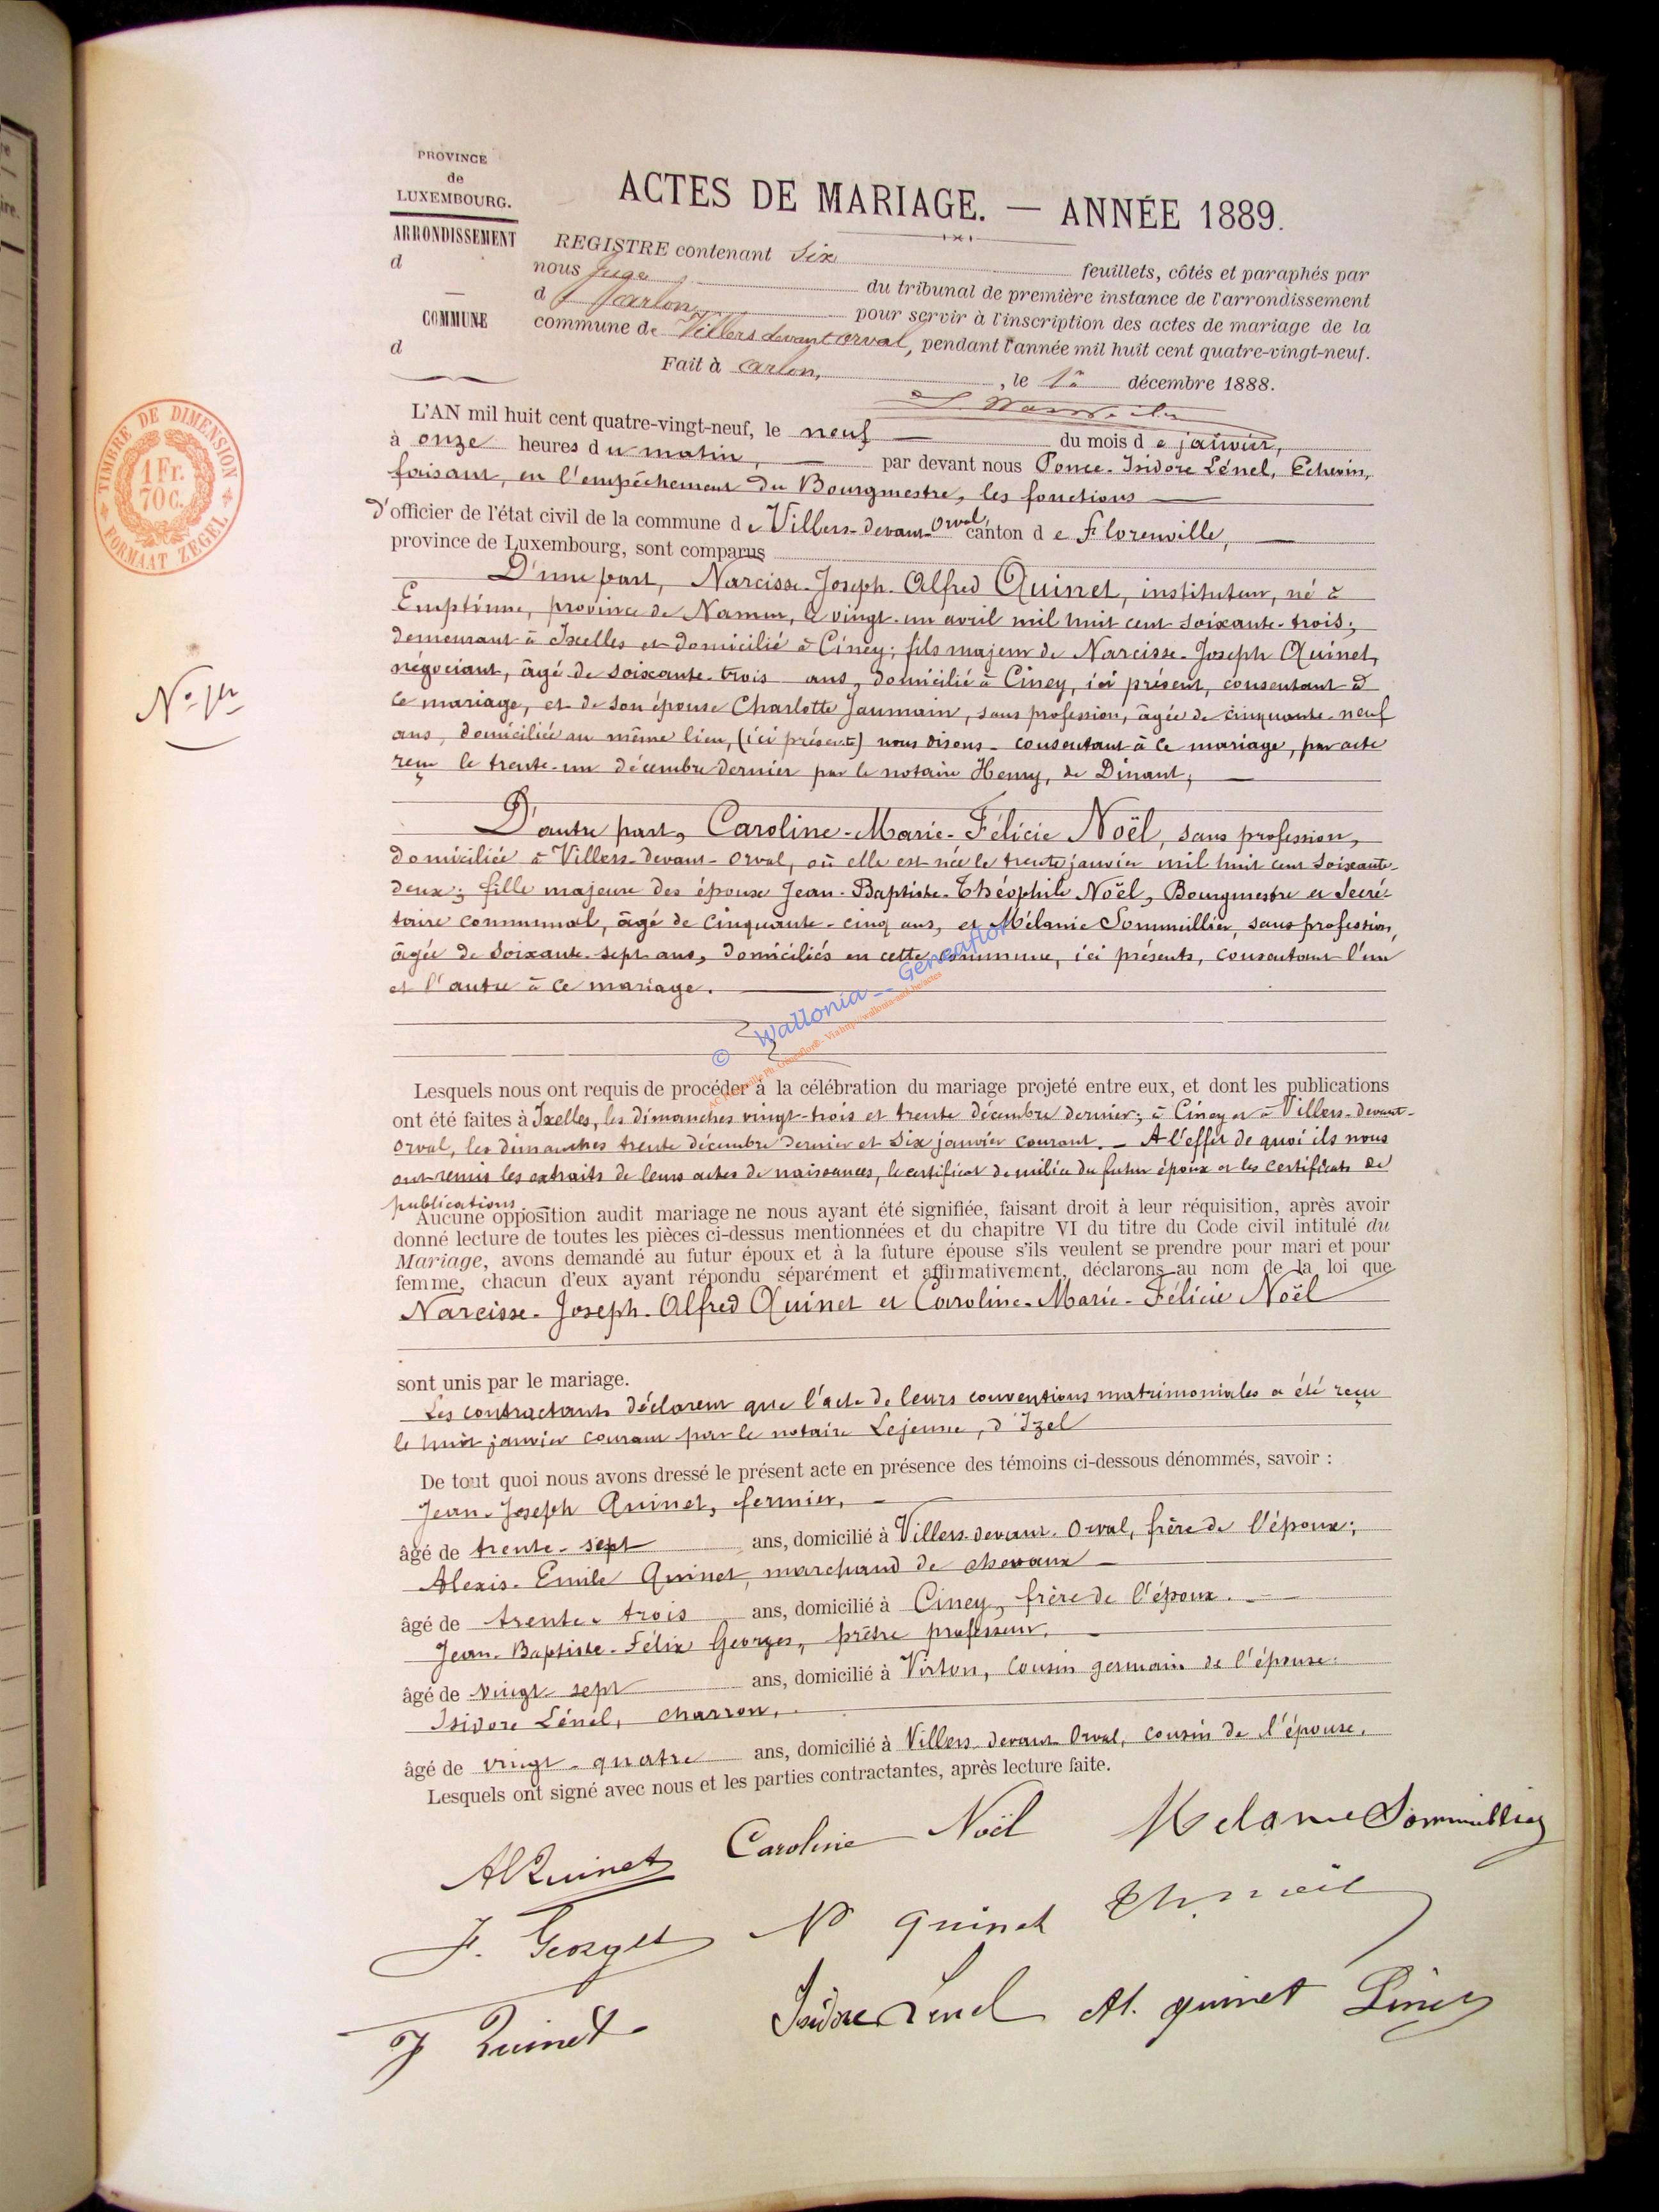 PROVINCE
de
LUXEMBOURG.
ARRONDISSEMENT
d
COMMUNE
d
ACTES DE MARIAGE. — ANNÉE 1889.
REGISTRE contenant six feuillets, côtés et paraphés par
nous Juge du tribunal de première instance de l'arrondissement
d'arlon, pour servir à l'inscription des actes de mariage de la
commune de Villers devant orval, pendant l'année mil huit cent quatre-vingt-neuf.
Fait à arlon, , le 1er décembre 1888.
TIMBRE DE DIMENSION
1 Fr.
70 C.
FORMAAT ZEGEL
L'AN mil huit cent quatre-vingt-neuf, le neuf — du mois de janvier,
à onze heures du matin, — par devant nous Ponce-Isidore Lénel, Echevin,
faisant, en l'empêchement du Bourgmestre, les fonctions —
d'officier de l'état civil de la commune de Villers-devant-Orval, canton de Florenville, —
province de Luxembourg, sont comparus
D'une part, Narcisse-Joseph-Alfred Quinet, instituteur, né à
Emptinne, province de Namur, le vingt-un avril mil huit cent soixante-trois;
demeurant à Ixelles et domicilié à Ciney; fils majeur de Narcisse-Joseph Quinet,
négociant, âgé de soixante-trois ans, domicilié à Ciney, ici présent, consentant à
ce mariage, et de son épouse Charlotte Jaumain, sans profession, âgée de cinquante-neuf
ans, domiciliée au même lieu, (ici présente) nous disons - consentant à ce mariage, par acte
reçu le trente-un décembre dernier par le notaire Henry, de Dinant; —
N° 1er
D'autre part, Caroline-Marie-Félicie Noël, sans profession,
domiciliée à Villers-devant-Orval, où elle est née le trente janvier mil huit cent soixante-
deux; fille majeure des époux Jean-Baptiste-Théophile Noël, Bourgmestre et Secré-
taire communal, âgé de cinquante-cinq ans, et Mélanie Sommeillier, sans profession,
âgée de soixante-sept ans, domiciliés en cette commune, ici présents, consentant l'un
et l'autre à ce mariage. —
© Wallonia __ Geneaflor
Lesquels nous ont requis de procéder à la célébration du mariage projeté entre eux, et dont les publications
ont été faites à Ixelles, les dimanches vingt-trois et trente décembre dernier; à Ciney et à Villers-devant-
Orval, les dimanches trente décembre dernier et six janvier courant. — A l'effet de quoi ils nous
ont remis les extraits de leurs actes de naissances, le certificat de milice du futur époux et les certificats de
publications.
Aucune opposition audit mariage ne nous ayant été signifiée, faisant droit à leur réquisition, après avoir
donné lecture de toutes les pièces ci-dessus mentionnées et du chapitre VI du titre du Code civil intitulé du
Mariage, avons demandé au futur époux et à la future épouse s'ils veulent se prendre pour mari et pour
femme, chacun d'eux ayant répondu séparément et affirmativement, déclarons au nom de la loi que
Narcisse-Joseph-Alfred Quinet et Caroline-Marie-Félicie Noël
sont unis par le mariage.
Les contractants déclarent que l'acte de leurs conventions matrimoniales a été reçu
le huit janvier courant par le notaire Lejeune, d'Izel
De tout quoi nous avons dressé le présent acte en présence des témoins ci-dessous dénommés, savoir :
Jean-Joseph Quinet, fermier, —
âgé de trente-sept ans, domicilié à Villers-devant-Orval, frère de l'époux;
Alexis-Emile Quinet, marchand de chevaux —
âgé de trente-trois ans, domicilié à Ciney, frère de l'époux. —
Jean-Baptiste-Félix Georges, prêtre professeur, —
âgé de vingt-sept ans, domicilié à Virton, cousin germain de l'épouse.
Isidore Lénel, charron,
âgé de vingt-quatre ans, domicilié à Villers-devant-Orval, cousin de l'épouse.
Lesquels ont signé avec nous et les parties contractantes, après lecture faite.
AlQuinet Caroline Noël Melanie Sommeillier
F. Georges N quinet Th. Noël
J Quinet Isidore Lénel Al. quinet Lénel